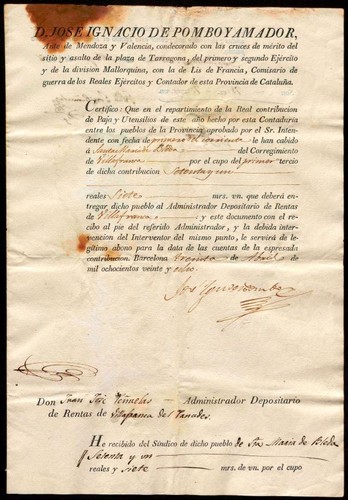 D. JOSE IGNACIO DE POMBO Y AMADOR,
de Mendoza y Valencia, condecorado con las cruces de mérito del
sitio y asalto de la plaza de Tarragona, del primero y segundo Ejército
y de la division Mallorquina, con la de Lis de Francia, Comisario de
guerra de los Reales Ejércitos y Contador de esta Provincia de Cataluña.
Certifico: Que en el repartimiento de la Real contribucion
de Paja y Utensilios de este año hecho por esta Contaduría
entre los pueblos de la Provincia, aprobado por el Sr. Inten
dente con fecha de primero del corriente le han cabido
á Bleda del Corregimiento
de Villafranca por el cupo del primer tercio
de dicha contribucion Setenta y un
reales Siete mrs. vn. que deberá en-
tregar dicho pueblo al Administrador Depositario de Rentas
de Villafranca y este documento con el re-
cibo al pie del referido Administrador, y la debida inter-
vencion del Interventor del mismo punto, le servirá de le-
gítimo abono para la data de las cuentas de la espresada
contribucion. Barcelona treinta de Abril de
mil ochocientos veinte y ocho.
Don Juan José Administrador Depositario
de Rentas de Villafranca del Panades.
He recibido del Síndico de dicho pueblo de Sta. Maria de Bleda
Setenta y un
reales y siete mrs. de vn. por el cupo